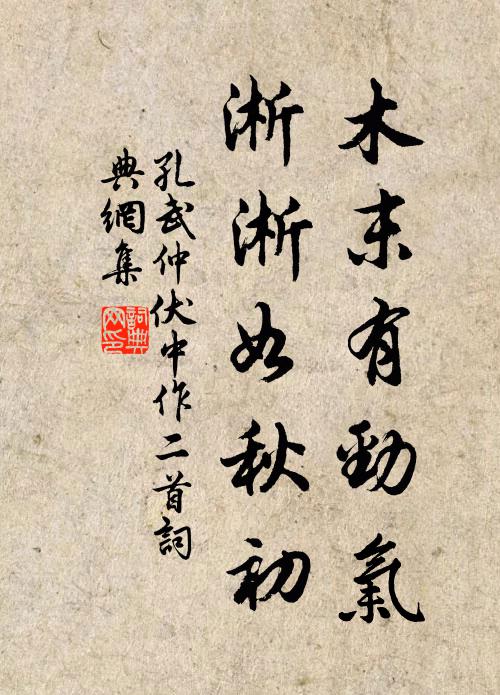 木末有勁氣
淅淅如秋初
孔武仲伏中作二首詞
典網集
詞典
网印